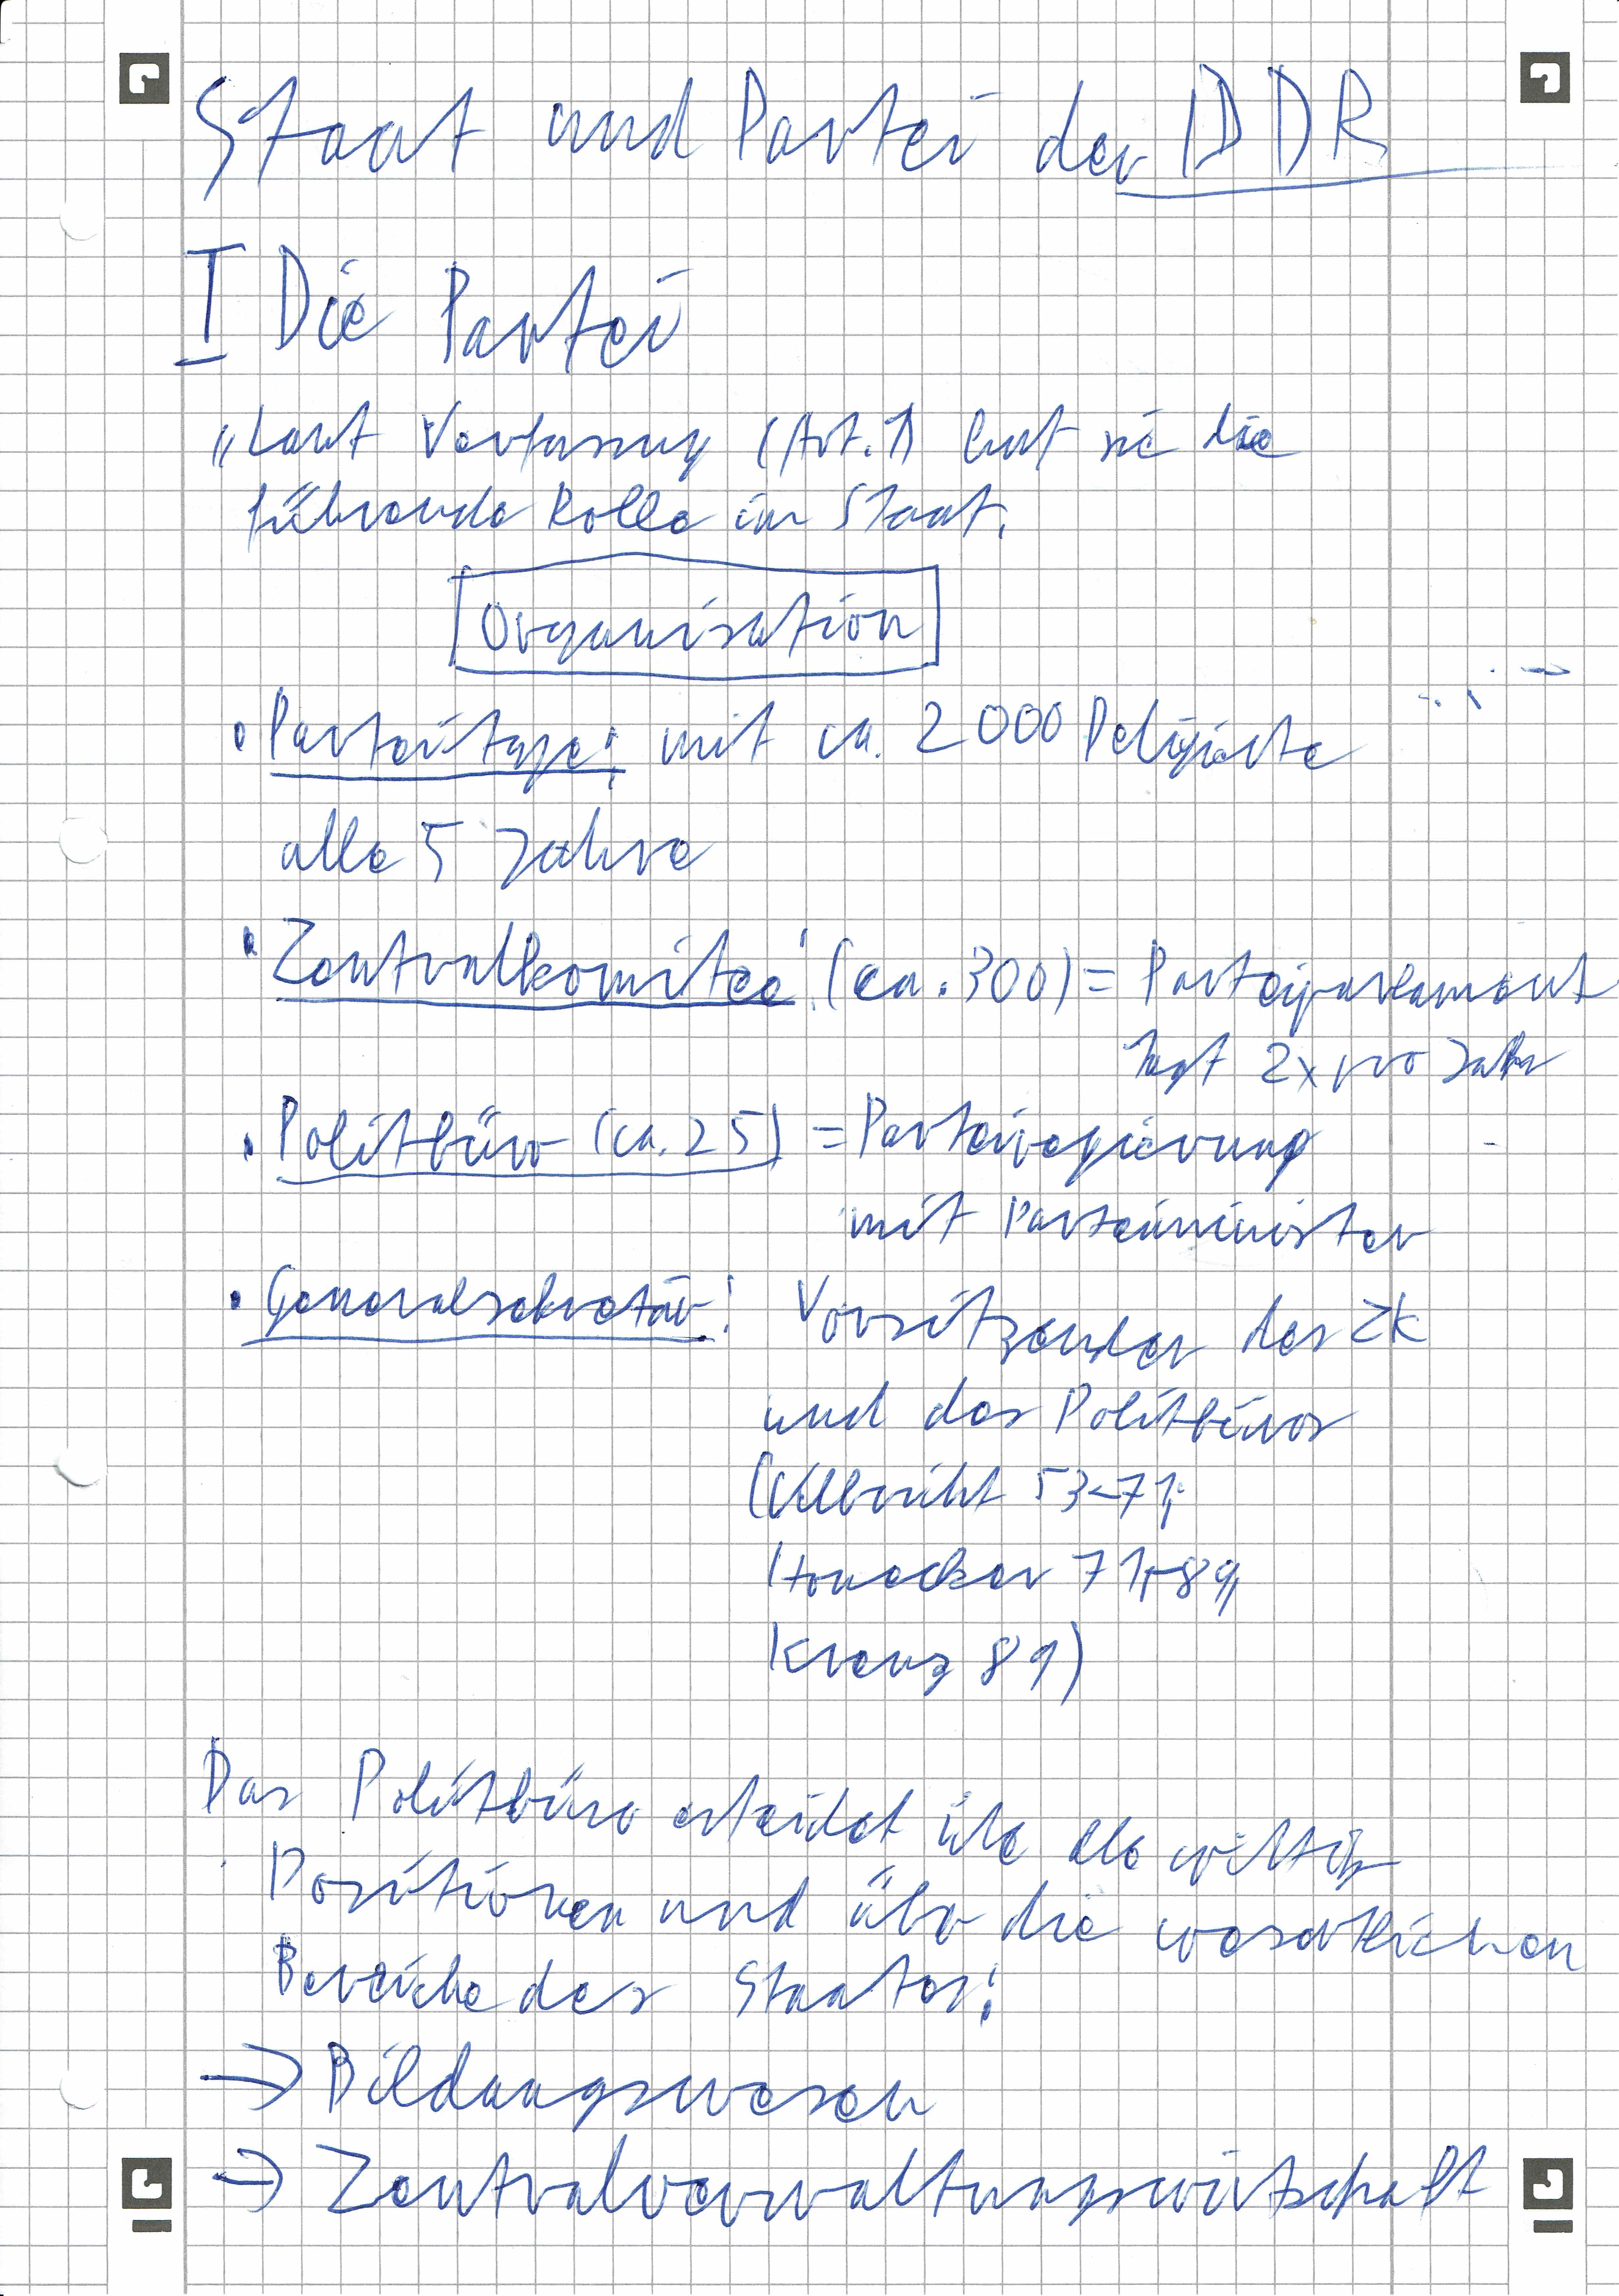 Staat und Partei der DDR
I Die Partei
"Laut Verfassung (Art. 1) hat sie die
führende Rolle im Staat.
Organisation
• Parteitage: mit ca. 2000 Deligierte
alle 5 Jahre
• Zentralkomitee: (ca. 300) = Parteiparlament
tagt 2x pro Jahr
• Politbüro (ca. 25) = Parteiregierung
mit Parteiminister
• Generalsekretär: Vorsitzender des ZK
und des Politbüros
(Ulbricht 53-71,
Honecker 71-89,
Krenz 89)
Das Politbüro alle
Positionen und über die wesentlichen
Bereiche des Staates:
→ Bildungswesen
→ Zentralverwaltungswirtschaft